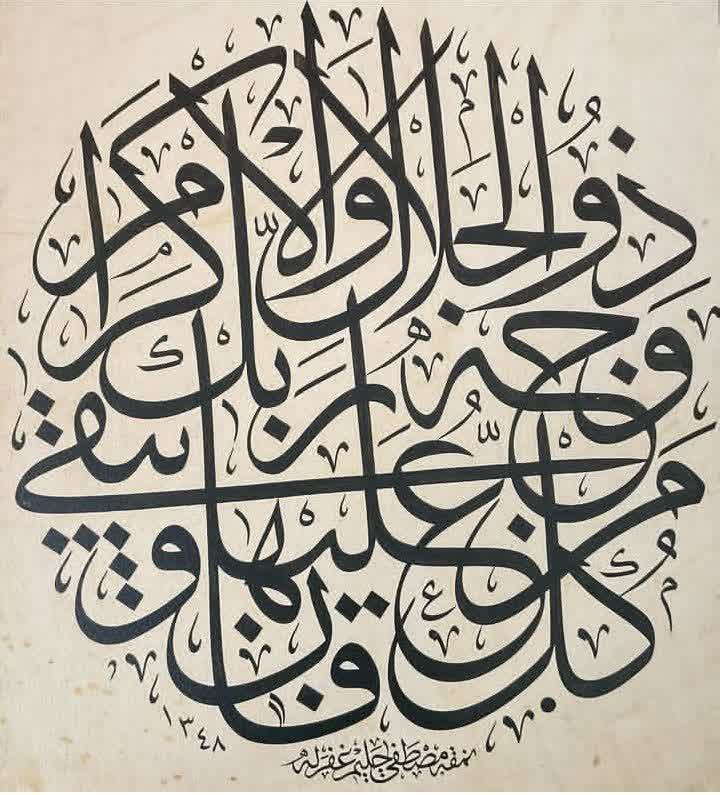 كل من عليها فان ويبقى
وجه ربك
ذو الجلال والاكرام
١٣٤٨
نمقه مصطفى حليم غفر له